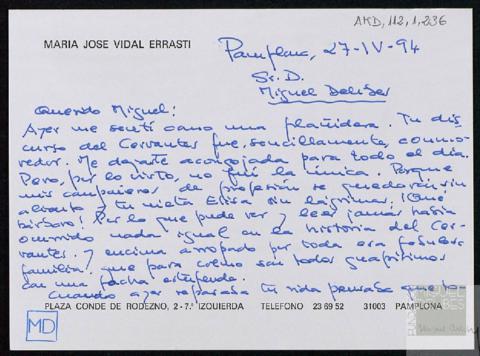 AMD,112,1,236
MARIA JOSE VIDAL ERRASTI
Pamplona, 27-IV-94
Sr. D.
Miguel Delibes
Querido Miguel:
Ayer me sentí como una plañidera. Tu dis
curso del Cervantes fue, sencillamente, conmo-
vedor. Me dejaste acongojada para todo el día.
Pero, por lo visto, no fuí la única. Porque
mis compañeros de profesión se quedaron sin
aliento y tu nieta Elisa sin lágrimas. ¡Qué
bárbaro! Por lo que pude ver y leer jamás había
ocurrido nada igual en la historia del Cer-
vantes. Y encima arropado por toda esa fabulosa
familia que para colmo son todos guapísimos
con una facha estupenda.
Cuando ayer repasaba tu vida pensaba que lo
PLAZA CONDE DE RODEZNO, 2-7.º IZQUIERDA TELEFONO 23 69 52 31003 PAMPLONA
MD
MIGUEL
DELIBES